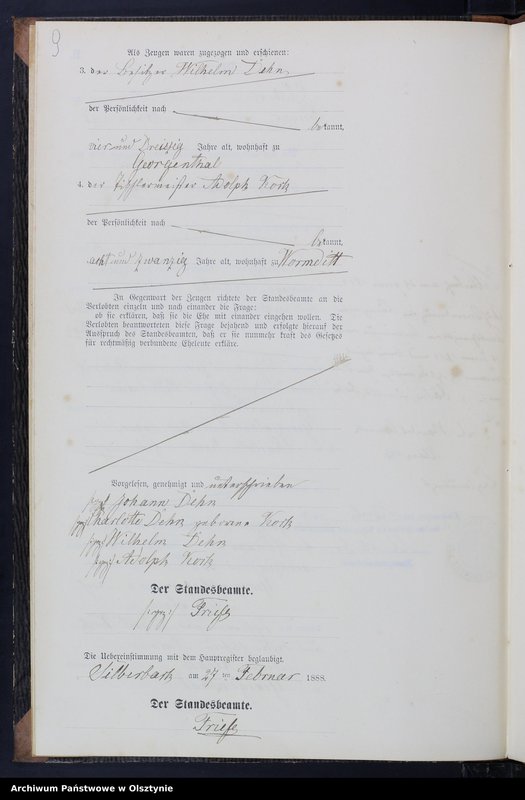 9
Als Zeugen waren zugezogen und erschienen:
3. der Besitzer Wilhelm Dehn
der Persönlichkeit nach
bekannt,
vier und Dreißig Jahre alt, wohnhaft zu
Georgenthal
4. der Adolph Kock
der Persönlichkeit nach
bekannt,
acht und zwanzig Jahre alt, wohnhaft zu Wormditt
In Gegenwart der Zeugen richtete der Standesbeamte an die
Verlobten einzeln und nach einander die Frage:
ob sie erklären, daß sie die Ehe mit einander eingehen wollen. Die
Verlobten beantworteten diese Frage bejahend und erfolgte hierauf der
Ausspruch des Standesbeamten, daß er sie nunmehr kraft des Gesetzes
für rechtmäßig verbundene Eheleute erkläre.
Vorgelesen, genehmigt und unterschrieben
gez. Johann Dehn
gez. Charlotte Dehn geborene Kock
gez. Wilhelm Dehn
gez. Adolph Kock
Der Standesbeamte.
gez. Friese
Die Uebereinstimmung mit dem Hauptregister beglaubigt.
Silberbach am 27 ten Februar 1888.
Der Standesbeamte.
Friese
Archiwum Państwowe w Olsztynie